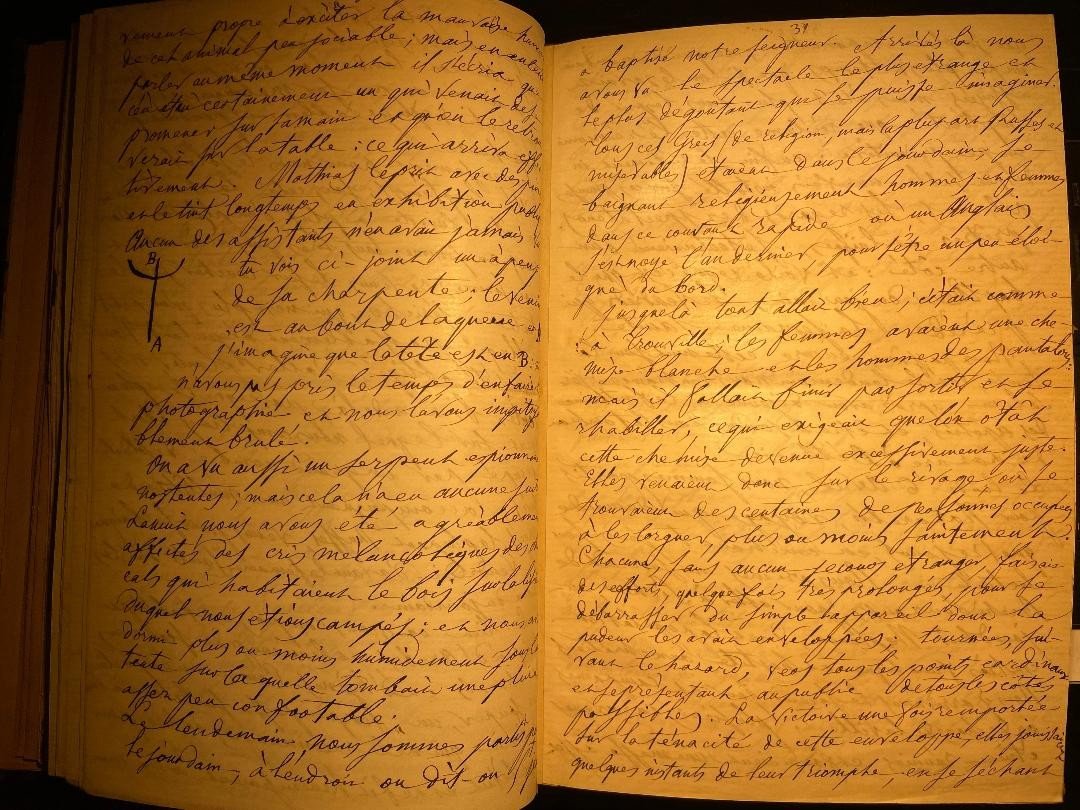 vement propre à exciter la mauvaise hum
de cet animal peu sociable ; mais en enten
parler au même moment il s'écria que
c'en était certainement un qui venait de se
promener sur sa main et qu'on le retrou
verait sur la table : ce qui arriva effec
tivement. Mathias le prit avec des pin
et le tint longtemps en exhibition publi
Aucun des assistants n'en avait jamais vu
B
tu vois ci-joint un aperç
de sa charpente ; le venin
est au bout de la queue en A
A
j'imagine que la tête est en B :
n'avons pas pris le temps d'en faire
photographie et nous l'avons impitoy
blement brulé.
On a vu aussi un serpent espionn
nos tentes ; mais cela n'a eu aucune sui
La nuit nous avons été agréableme
affectés des cris mélancoliques des
cals qui habitaient le bois sur la lis
duquel nous étions campés ; et nous
dormi plus ou moins humidement sous la
tente sur laquelle tombait une pluie
assez peu confortable.
Le lendemain, nous sommes partis
le Jourdain, à l'endroit où dit-on
31
a baptisé notre seigneur. Arrivés là nous
avons vu le spectacle le plus étrange et
le plus dégoutant que se puisse imaginer.
Tous ces Grecs (de religion, mais la plupart Russes et
misérables) étaient dans le Jourdain, se
baignant religieusement hommes et femmes
dans ce courant rapide où un Anglais
s'est noyé l'an dernier, pour s'être un peu éloi-
gné du bord.
jusque là tout allait bien ; c'était comme
à Trouville ; les femmes avaient une che-
mise blanche et les hommes des pantalons :
mais il fallait finir par sortir et se
rhabiller, ce qui exigeait que l'on ôtât
cette chemise devenue excessivement juste.
Elles venaient donc sur le rivage où se
trouvaient des centaines de personnes occupées
à les lorgner, plus ou moins saintement.
Chacune, sans aucun secours étranger, faisait
des efforts, quelquefois très prolongés, pour se
débarrasser du simple appareil dont la
pudeur les avait enveloppées ; tournées, sui-
vant le hazard, vers tous les points cardinaux
et se présentant au public de tous les côtés
possibles. La victoire une fois remportée
sur la ténacité de cette enveloppe, elles jouissaient
quelques instants de leur triomphe, en se séchant